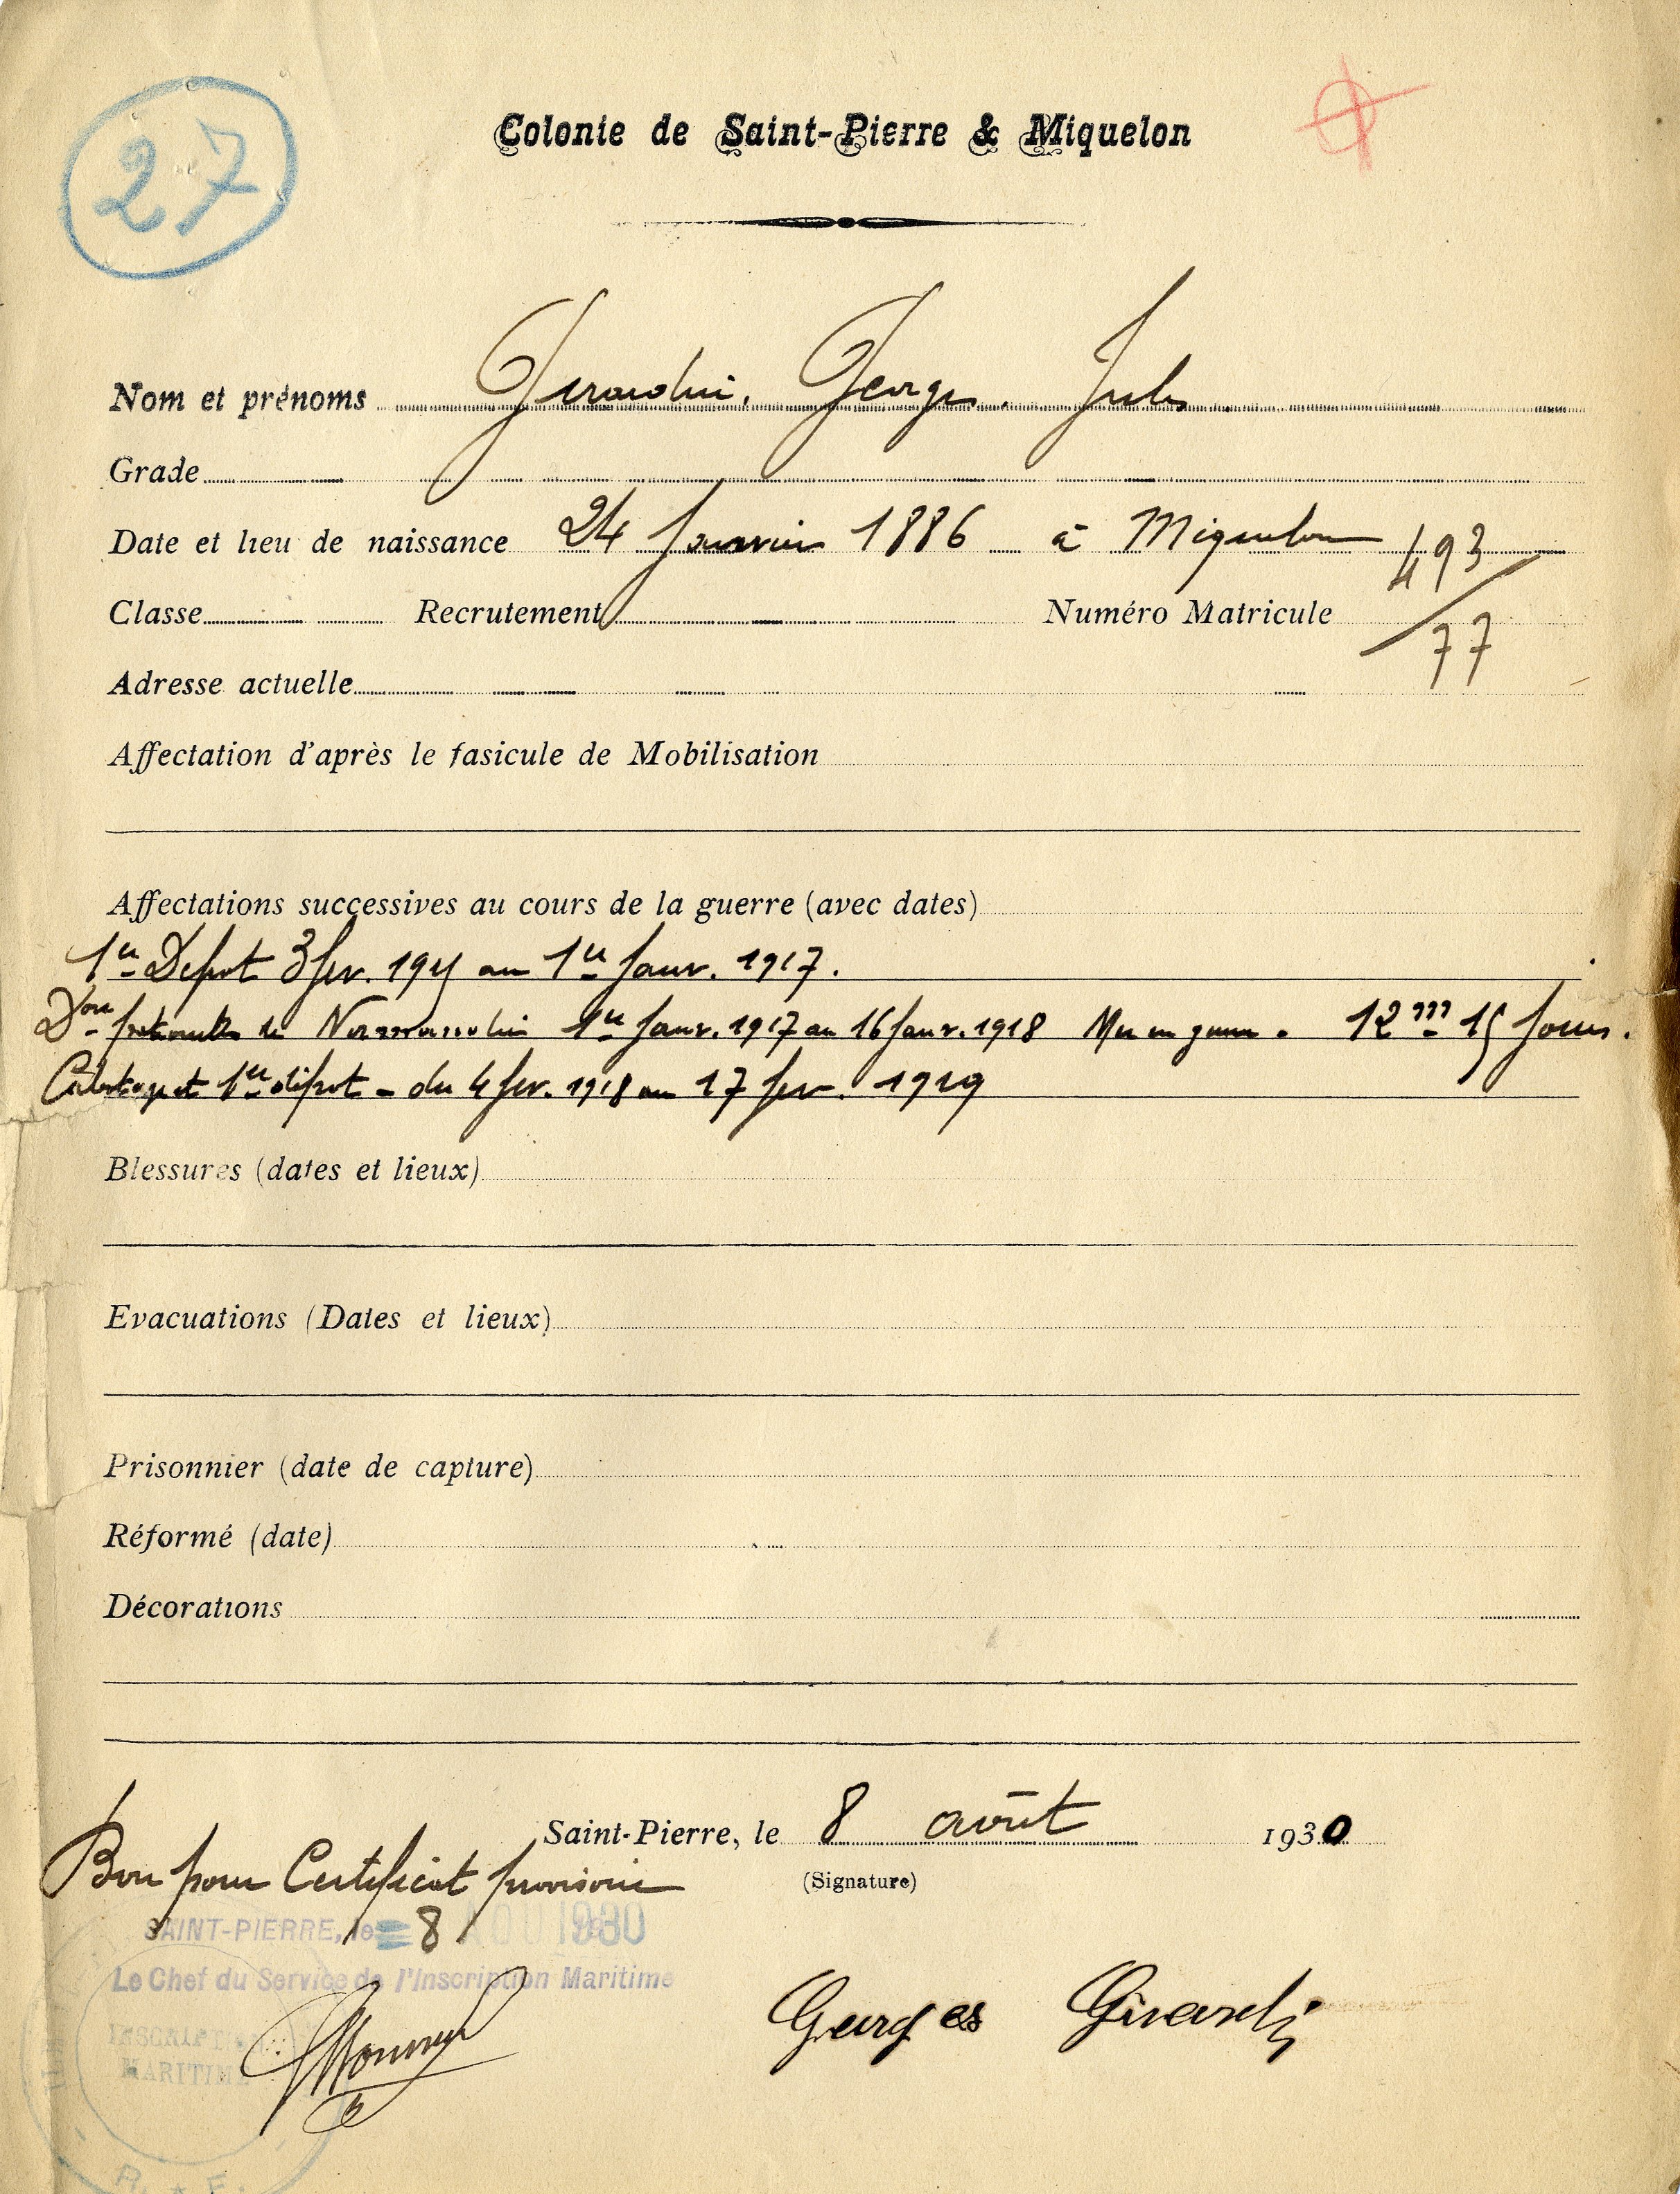 27
Colonie de Saint-Pierre & Miquelon
Nom et prénoms Girardin, Georges. Jules
Grade
Date et lieu de naissance 24 Janvier 1886 à Miquelon
Classe Recrutement Numéro Matricule 493/77
Adresse actuelle
Affectation d'après le fasicule de Mobilisation
Affectations successives au cours de la guerre (avec dates)
1er Dépot 3 fev. 1915 au 1er Janv. 1917.
Don patrouilles de Normandie 1er Janv. 1917 au 16 Janv. 1918 Mer en guerre. 12 m 15 Jours.
Cabotage et 1er dépot - du 4 fev. 1918 au 17 fev. 1919
Blessures (dates et lieux)
Evacuations (Dates et lieux)
Prisonnier (date de capture)
Réformé (date)
Décorations
Saint-Pierre, le 8 août 1930
Bon pour Certificat provisoire
(Signature)
SAINT-PIERRE, le 8 AOU 1930
Le Chef du Service de l'Inscription Maritime
Georges Girardin
INSCRIPT
MARITIME
R. F.